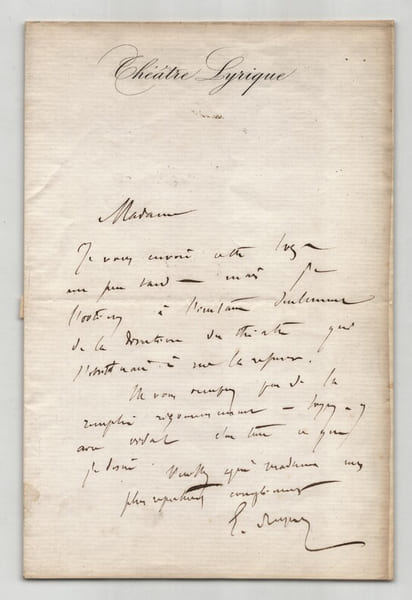 Théâtre Lyrique
Madame
Je vous envoie cette loge
un peu tard — mais je
l'obtiens à l'instant seulement
de la direction du théâtre qui
s'obstinait à me la refuser.
Ne vous occupez pas de la
remplir rigoureusement — soyez-y
avec
je désire. Veuillez agréer madame mes
plus respectueux compliments
E.